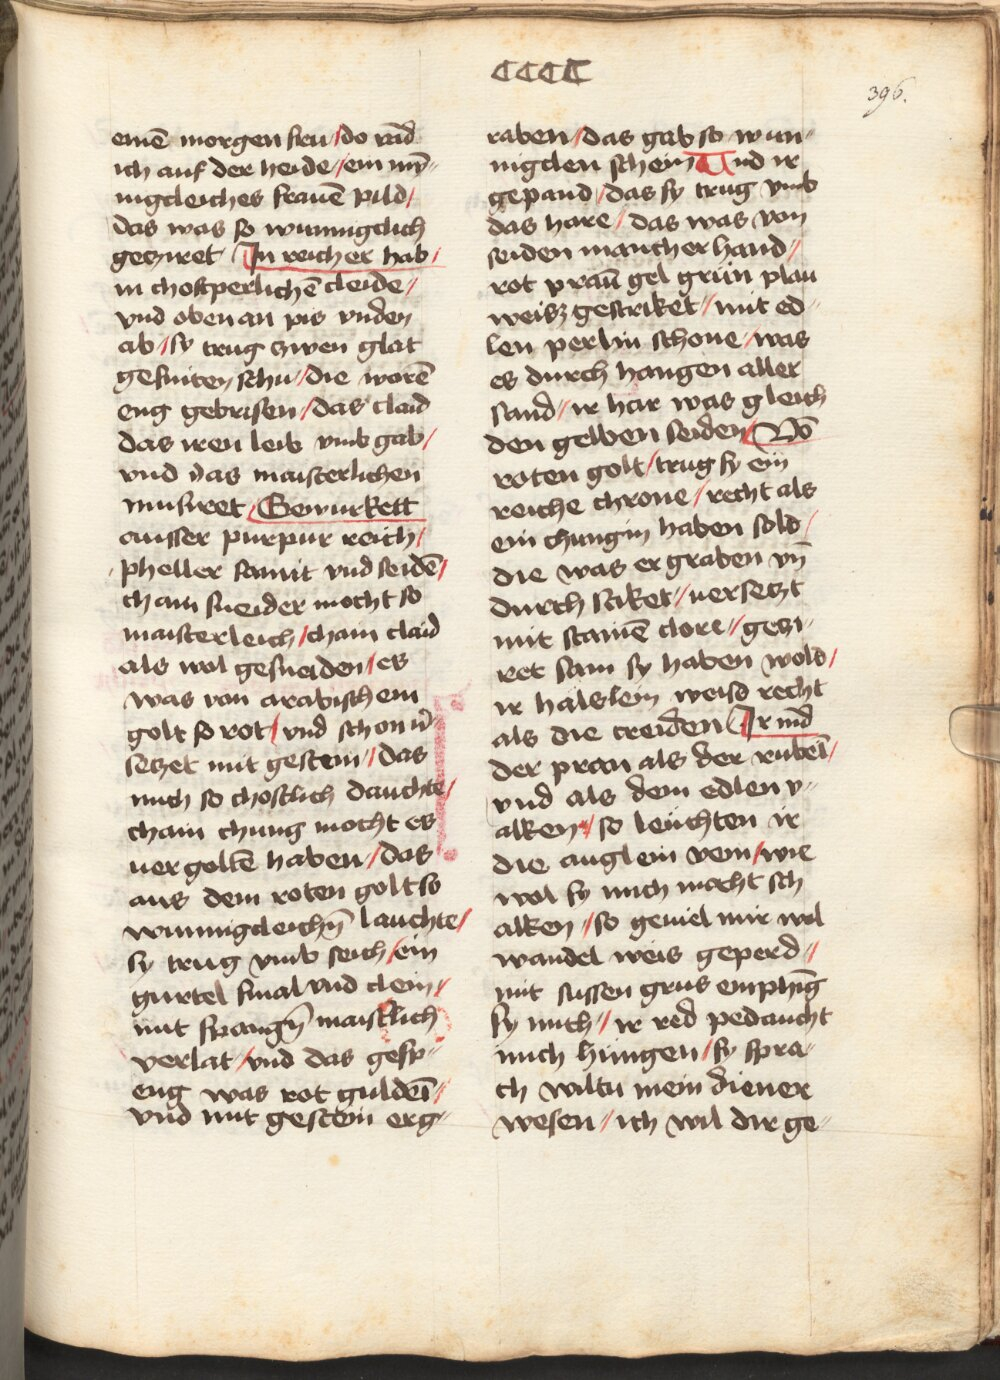 cccc
396.
einē morgen fru / do vād
ich auf der heide / ein mȳ-
nigcleiches frauē pild /
das was so wunnigclich
gecziret / In reicher hab /
in chostperlichē cleide /
vnd oben an pis vnden
ab / sy trug czwen glat
gesniten schu / die worē
eng gebrisen / das claid
das iren leib vmb gab /
vnd das maisterlichen
Gewurkett
ausser purpur reich /
pheller samit vnd seidē /
chain sneider mocht so
maisterleich / chain claid
als wol gesneiden / es
was von arabischem
golt so rot / vnd schon v̄-
seczet mit gestein / das
mich so chostlich dauchte /
chain chunig mocht es
vergoltē haben / das
aus dem roten golt so
wunnigcleichn̄ lauchte /
sy trug vmb seich / ein
gurtel smal vnd clein /
mit spangn̄ maistlich
verlat / vnd das gesp-
eng was rot guldeī /
vnd mit gestein erg-
raben / das gab so wun-
nigclen schein Vnd ir
gepand / das sy trug vmb
das hare / das was von
seiden mancher hand /
rot praū gel grün plau
weisz gestriket / mit ed-
len perlin schone / was
es durch hangen aller
sand / ir har was gleich
den gelben seiden / Vō
roten golt / trug sy ein
reiche chrone / recht als
ein chungin haben sold /
die was ergraben vn̄
durch sciket / verseczt
mit stainē clore / geczi-
ret sam sy haben wold /
ir halslein weisd recht
als die creiden Ir md̄
der pran als der rubeī /
vnd als dem edlen v-
alken / so leüchten ir
die auglein vein / wie
wol sy mich macht sch
alken / so geviel mir wol
wandel weis geperd /
mit sussen grus emphīg
sy mich / ir red pedaucht
mich hüngen / sy spra-
ch wiltu mein diener
wesen / ich wil dir ge-